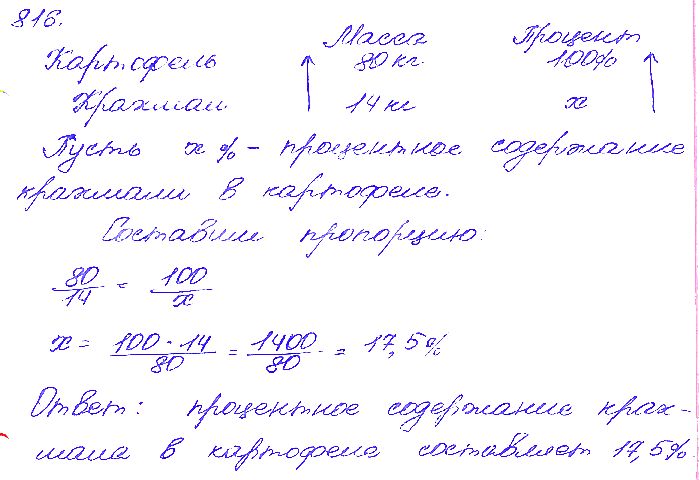 816.
Масса Процент
Картофель 80 кг 100%
Крахмал 14 кг x
Пусть x% - процентное содержание
крахмала в картофеле.
Составим пропорцию:
80/14 = 100/x
x = 100·14/80 = 1400/80 = 17,5%
Ответ: процентное содержание крах-
мала в картофеле составляет 17,5%